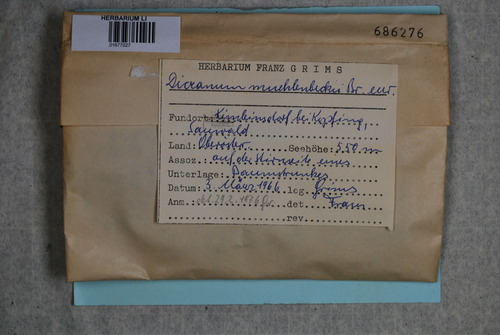 HERBARIUM LI
01677027
686276
HERBARIUM FRANZ GRIMS
Dicranum muehlenbeckii Br. eur.
Fundort: bei Kopfing,
Sauwald
Land: Oberösr. Seehöhe: 550 m
Assoz. auf der Stirnseite eines
Unterlage: Baumstrunkes
Datum: 3. März 1966 leg. Grims
Anm.
det.
rev.